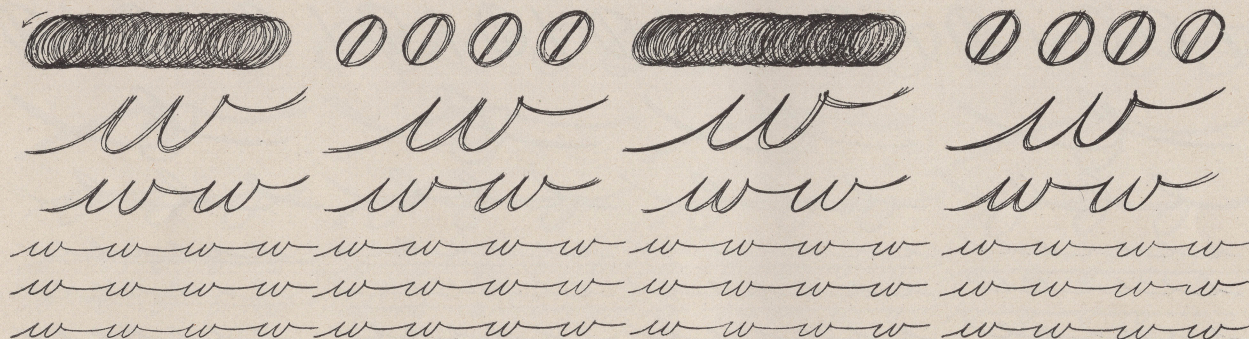 w w w w
ww ww ww ww
wwww wwww wwww wwww
wwww wwww wwww wwww
wwww wwww wwww wwww